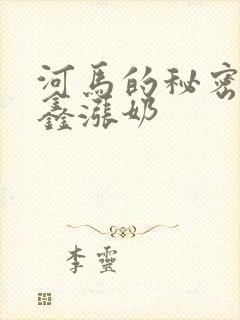 河馬的秘密
鑫漲奶
李靈